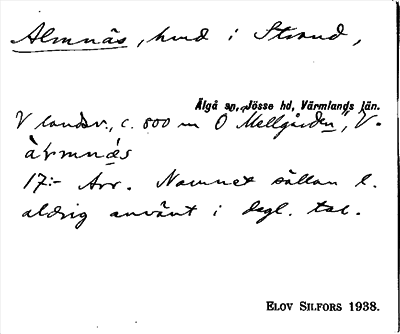 Almnäs, hmd i Strand,
Älgå sn, Jösse hd, Värmlands län.
V landsv., c. 800 m O Mellgården, V.
àrmnǽs
17:- Arr. Namnet sällan l.
aldrig använt i dagl. tal.
ELOV SILFORS 1938.